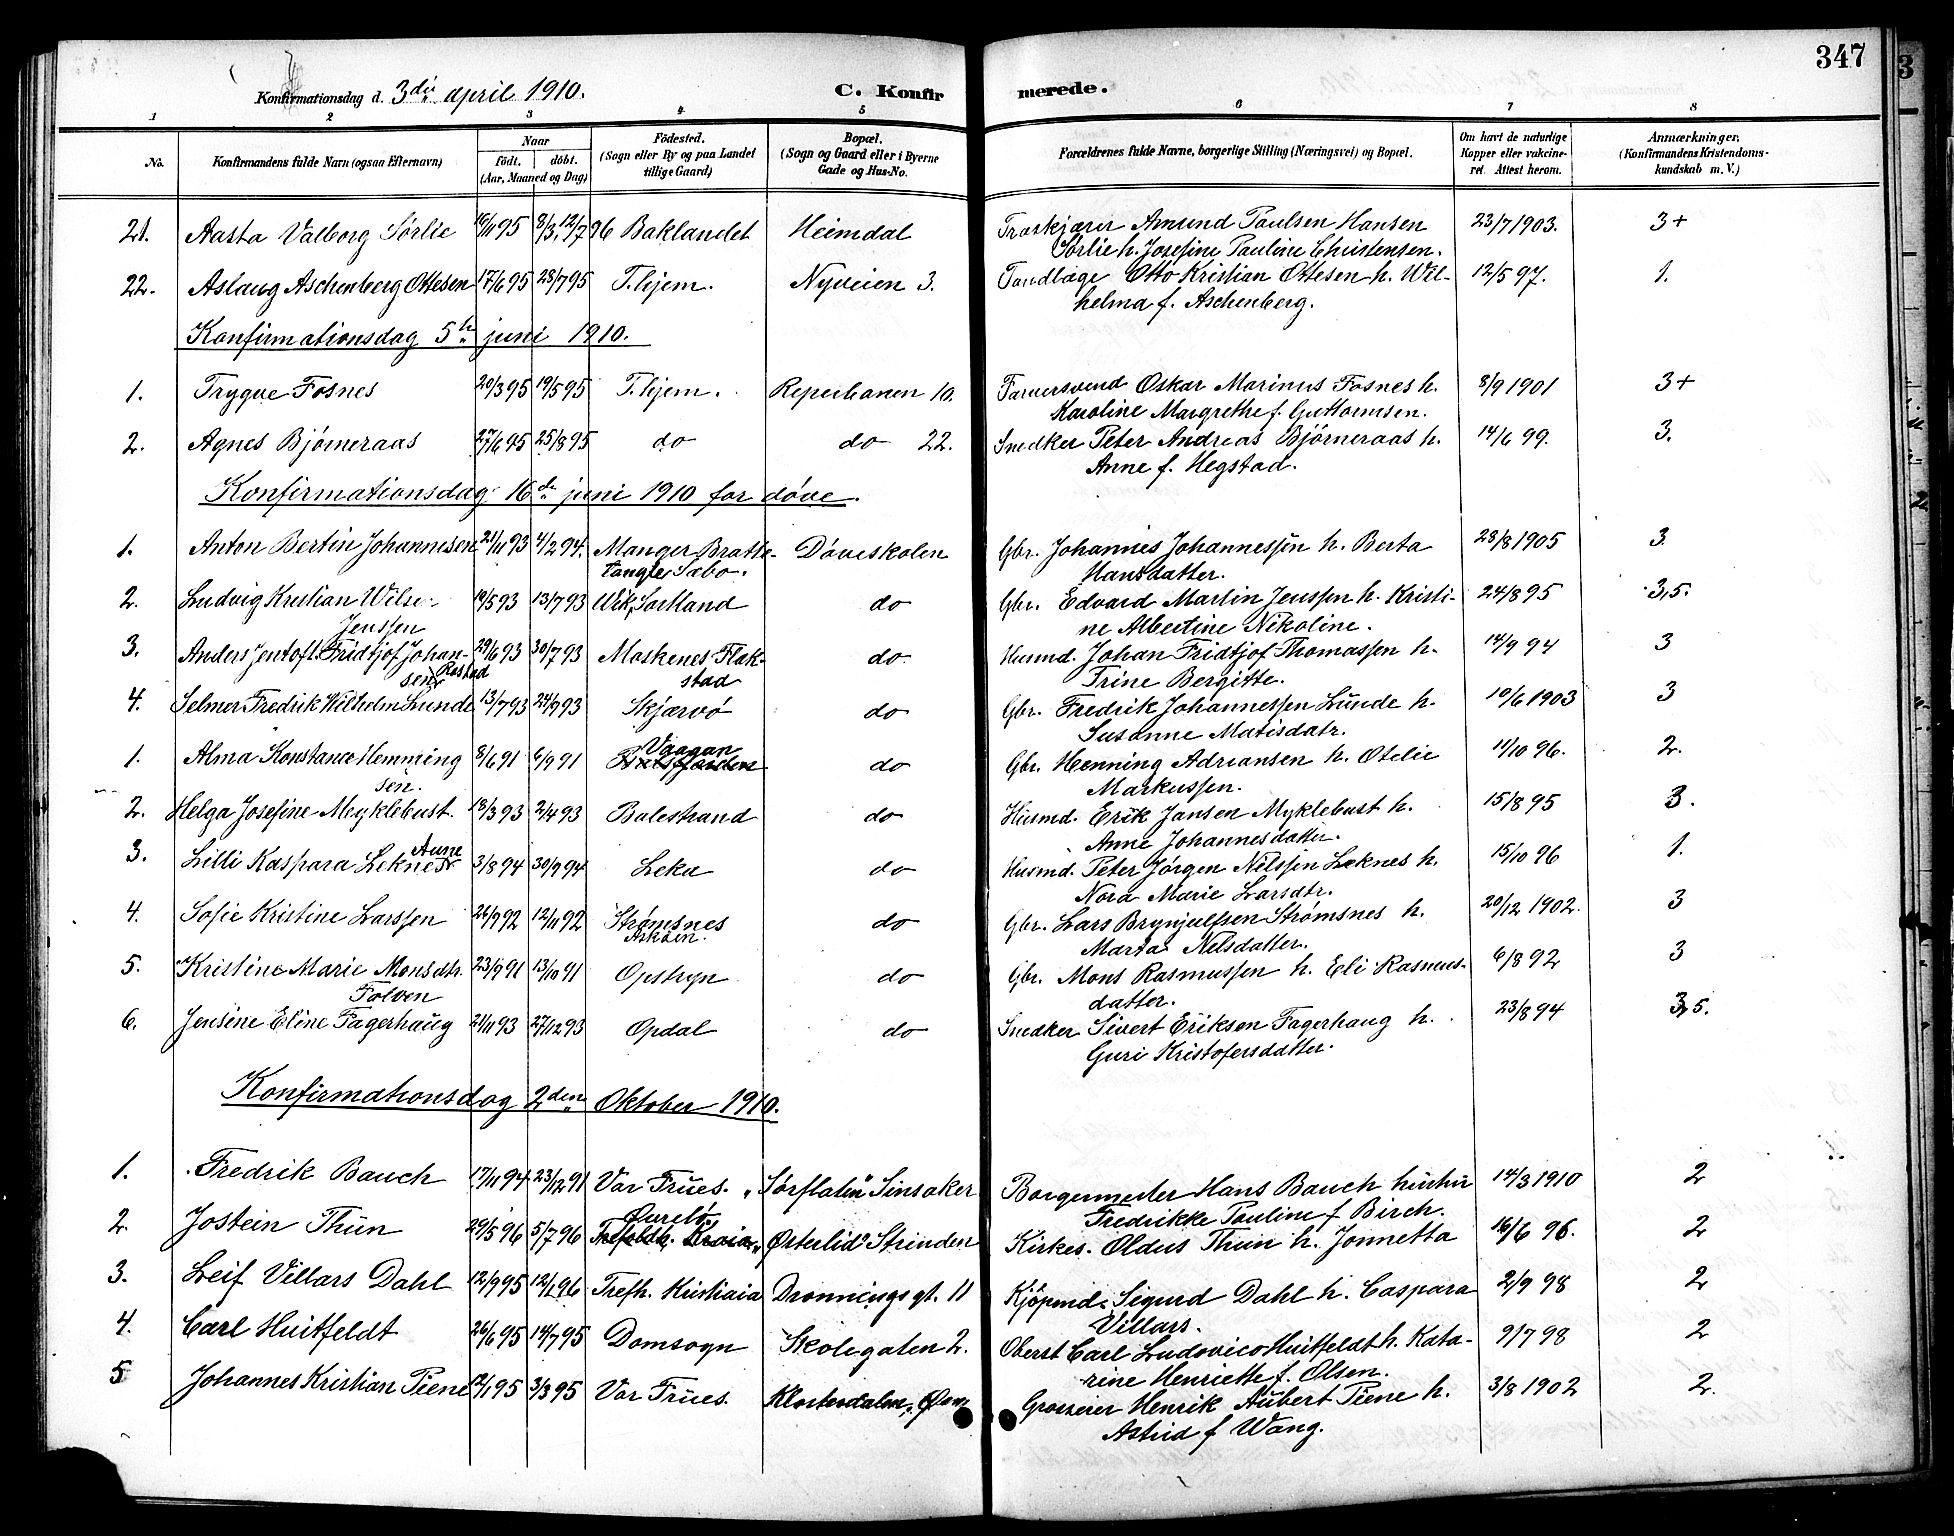 347
Konfirmationsdag d. 3die april 1910. C. Konfirmerede.
1 2 3 4 5 6 7 8
No. Konfirmandens fulde Navn (ogsaa Efternavn) Naar født. døbt. (Aar, Maaned og Dag) Fødested. (Sogn eller By og paa Landet tillige Gaard) Bopæl. (Sogn og Gaard eller i Byerne Gade og Hus-No. Forældrenes fulde Navne, borgerlige Stilling (Næringsvei) og Bopæl. Om havt de naturlige Kopper eller vakcineret. Attest herom. Anmærkninger. (Konfirmandens Kristendomskundskab m. V.)
21. Aasta Valborg Sørlie 16/11 95 8/3, 12/7 96 Baklandet Heimdal Træskjærer Amund Paulsen Hansen 23/7 1903. 3+
Sørlie h. Josefine Pauline Christensen.
22. Aslaug Aschenberg Ottesen 17/6 95 28/7 95 T.hjem. Nyveien 3. Tandlæge Otto Kristian Ottesen h. Wil- 12/5 97. 1.
helma f. Aschenberg.
Konfirmationsdag 5te juni 1910.
1. Trygve Fosnes 20/3 95 19/5 95 T.hjem. Reperbanen 10. Farversvend Oskar Marinus Fosnes h. 8/9 1901 3+
Karoline Margrethe f. Guttormsen.
2. Agnes Bjørneraas 27/6 95 25/8 95 do do 22. Snedker Peter Andreas Bjørneraas h. 14/6 99. 3.
Anne f. Hegstad.
Konfirmationsdag 16de juni 1910 for døve.
1. Anton Bertin Johannesen 21/11 93 4/2 94. Manger Bratte- Døveskolen Gbr. Johannes Johannessen h. Berta 28/8 1905 3
tangle Sæbo. Hansdatter.
2. Ludvig Kristian Wilse- 19/5 93 13/7 93 Wik, Sortland do Gbr. Edvard Martin Jenssen h. Kristi- 24/8 95 3,5.
Jenssen ne Albertine Nikoline.
3. Anders Jentoft Fridtjof Johan- 29/6 93 30/7 93 Moskenes Flak- do Husmd. Johan Fridtjof Thomassen h. 14/9 94 3
sen Rostad stad Trine Bergitte.
4. Selmer Fredrik Wilhelm Lunde 13/7 93 24/9 93 Skjærvø do Gbr. Fredrik Johannessen Lunde h. 10/6 1903 3
Susanne Matisdatr.
1. Alma Konstance Hemming 8/6 91 6/9 91 Vaagan do Gbr. Henning Adriansen h. Otelie 11/10 96. 2.
sen. Markussen.
2. Helga Josefine Myklebust. 18/3 93 2/4 93 Balestrand do Husmd. Erik Jansen Myklebust h. 15/8 95 3.
Anne Johannesdatter.
3. Lilli Kaspara Leknes Aune 3/8 94 30/9 94 Leka do Husmd. Peter Jørgen Nilssen Leknes h. 15/10 96 1.
Nora Marie Larsdtr.
4. Sofie Kristine Larssen 26/9 92 12/11 92 Strømsnes do Gbr. Lars Brynjulfsen Strømsnes h. 20/12 1902. 3
Askøen. Marta Nilsdatter.
5. Kristine Marie Monsdtr. 23/9 91 13/10 91 Opstryn do Gbr. Mons Rasmussen h. Eli Rasmus- 6/8 92 3
Folven datter.
6. Jensine Eline Fagerhaug 21/11 93 27/12 93 Opdal do Snedker Sivert Eriksen Fagerhaug h. 23/8 94 3,5.
Guri Kristofersdatter.
Konfirmationsdag 2den Oktober 1910.
1. Fredrik Bauch 17/11 94 23/12 91 Vor Frues. "Sørflaten" Sinsaker Borgermester Hans Bauch hustru 14/3 1910 2
Fredrikke Pauline f. Birch.
2. Jostein Thun 29/5 96 5/7 96 Trefoldh. Kraia "Østerlid" Strinden Kirkes. Oldus Thun h. Jonnetta 16/6 96. 2
3. Leif Villars Dahl 12/9 95 12/1 96 Trefh. Kristiaia Dronningsgt. 11 Kjøpmd. Sigurd Dahl h. Caspara 2/9 98 2
Villars.
4. Carl Huitfeldt 26/6 95 14/7 95 Domsogn Skolegaten 2. Oberst Carl Ludovico Huitfeldt h. Kata- 9/7 98 2
rine Henriette f. Olsen.
5 Johannes Kristian Piene 12/1 95 3/3 95 Vor Frues. Klosterdalen, Grosserer Henrik Aubert Piene h. 3/8 1902 2.
Astrid f. Wang.